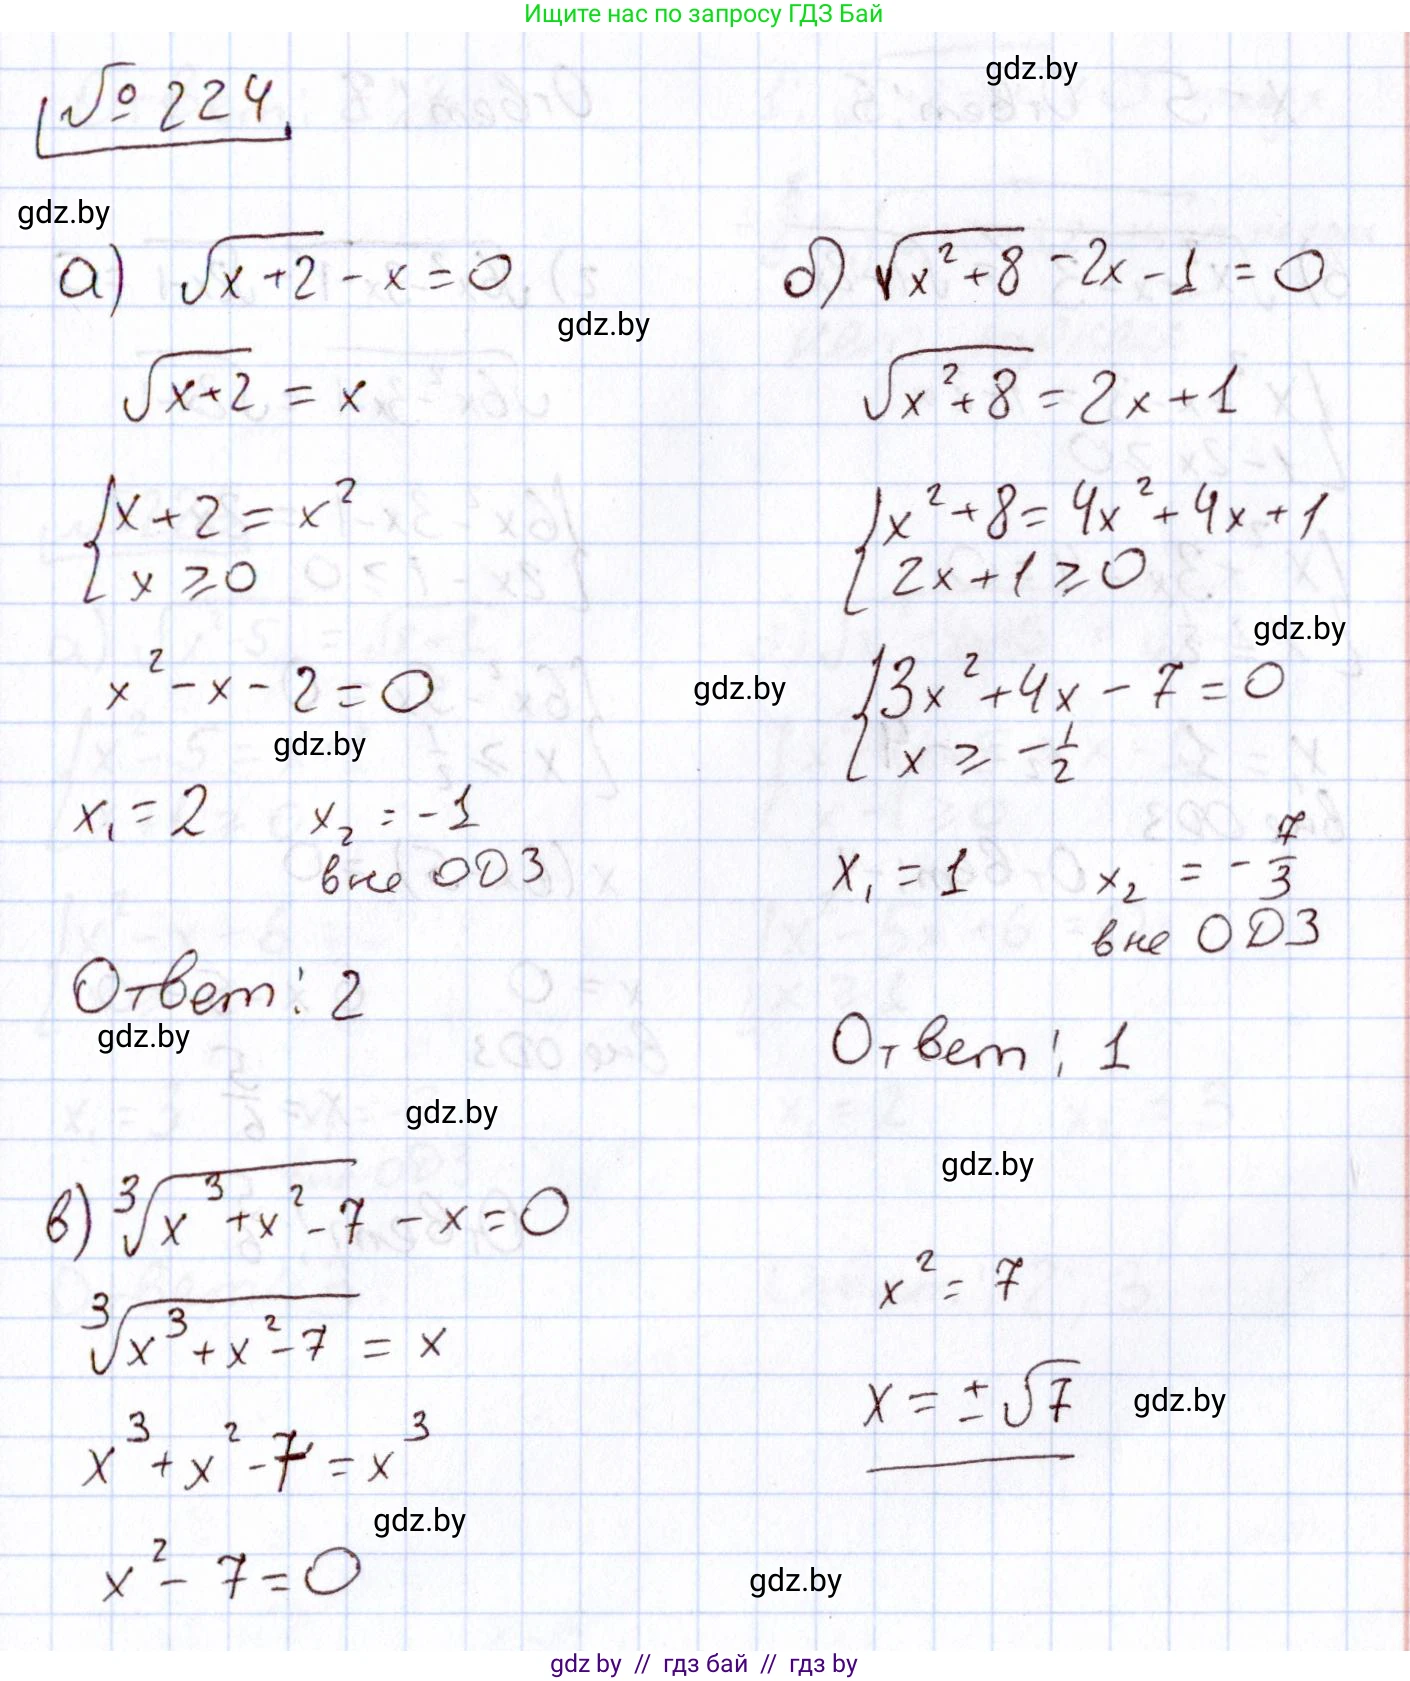 Ищите нас по запросу ГДЗ Бай
gdz.by
№ 224
gdz.by
а) √(x+2) - x = 0
gdz.by
√(x+2) = x
{ x + 2 = x²
x ≥ 0
x² - x - 2 = 0
gdz.by
x₁ = 2 x₂ = -1
вне ОДЗ
Ответ: 2
gdz.by
б) √(x²+8) - 2x - 1 = 0
√(x²+8) = 2x + 1
{ x² + 8 = 4x² + 4x + 1
2x + 1 ≥ 0
gdz.by
gdz.by
{ 3x² + 4x - 7 = 0
x ≥ -1/2
x₁ = 1 x₂ = -7/3
вне ОДЗ
Ответ: 1
gdz.by
gdz.by
в) ∛(x³+x²-7) - x = 0
∛(x³+x²-7) = x
x³ + x² - 7 = x³
gdz.by
x² - 7 = 0
x² = 7
x = ±√7
gdz.by
gdz.by
gdz by // гдз бай // гдз by